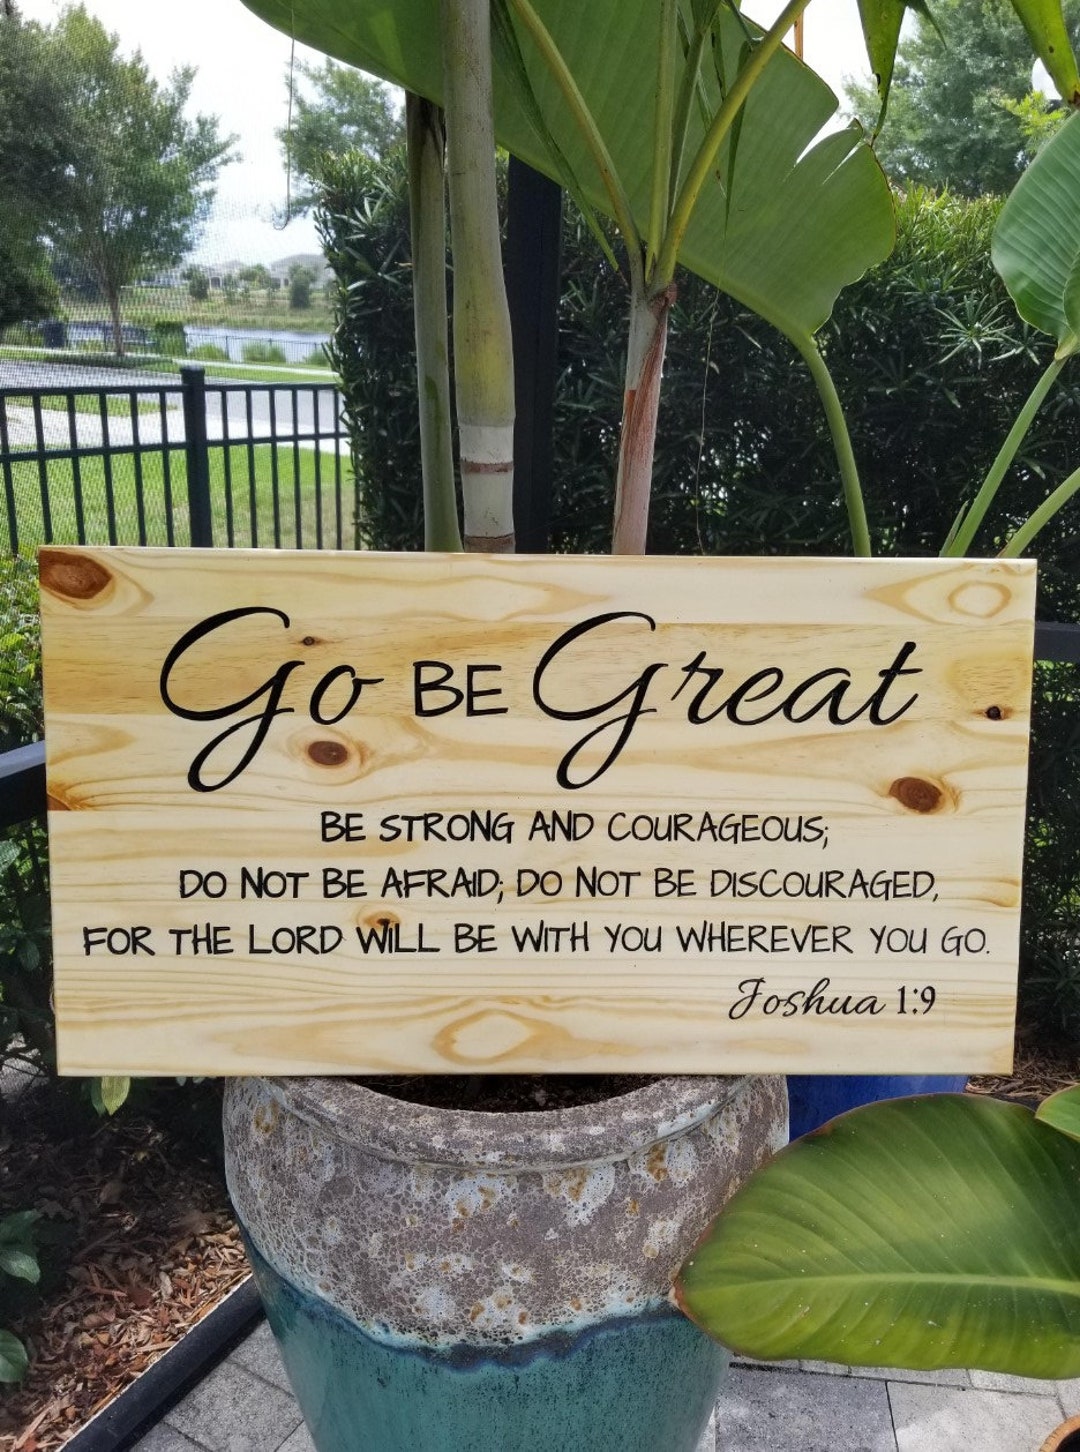 Go BE Great
BE STRONG AND COURAGEOUS;
DO NOT BE AFRAID; DO NOT BE DISCOURAGED,
FOR THE LORD WILL BE WITH YOU WHEREVER YOU GO.
Joshua 1:9